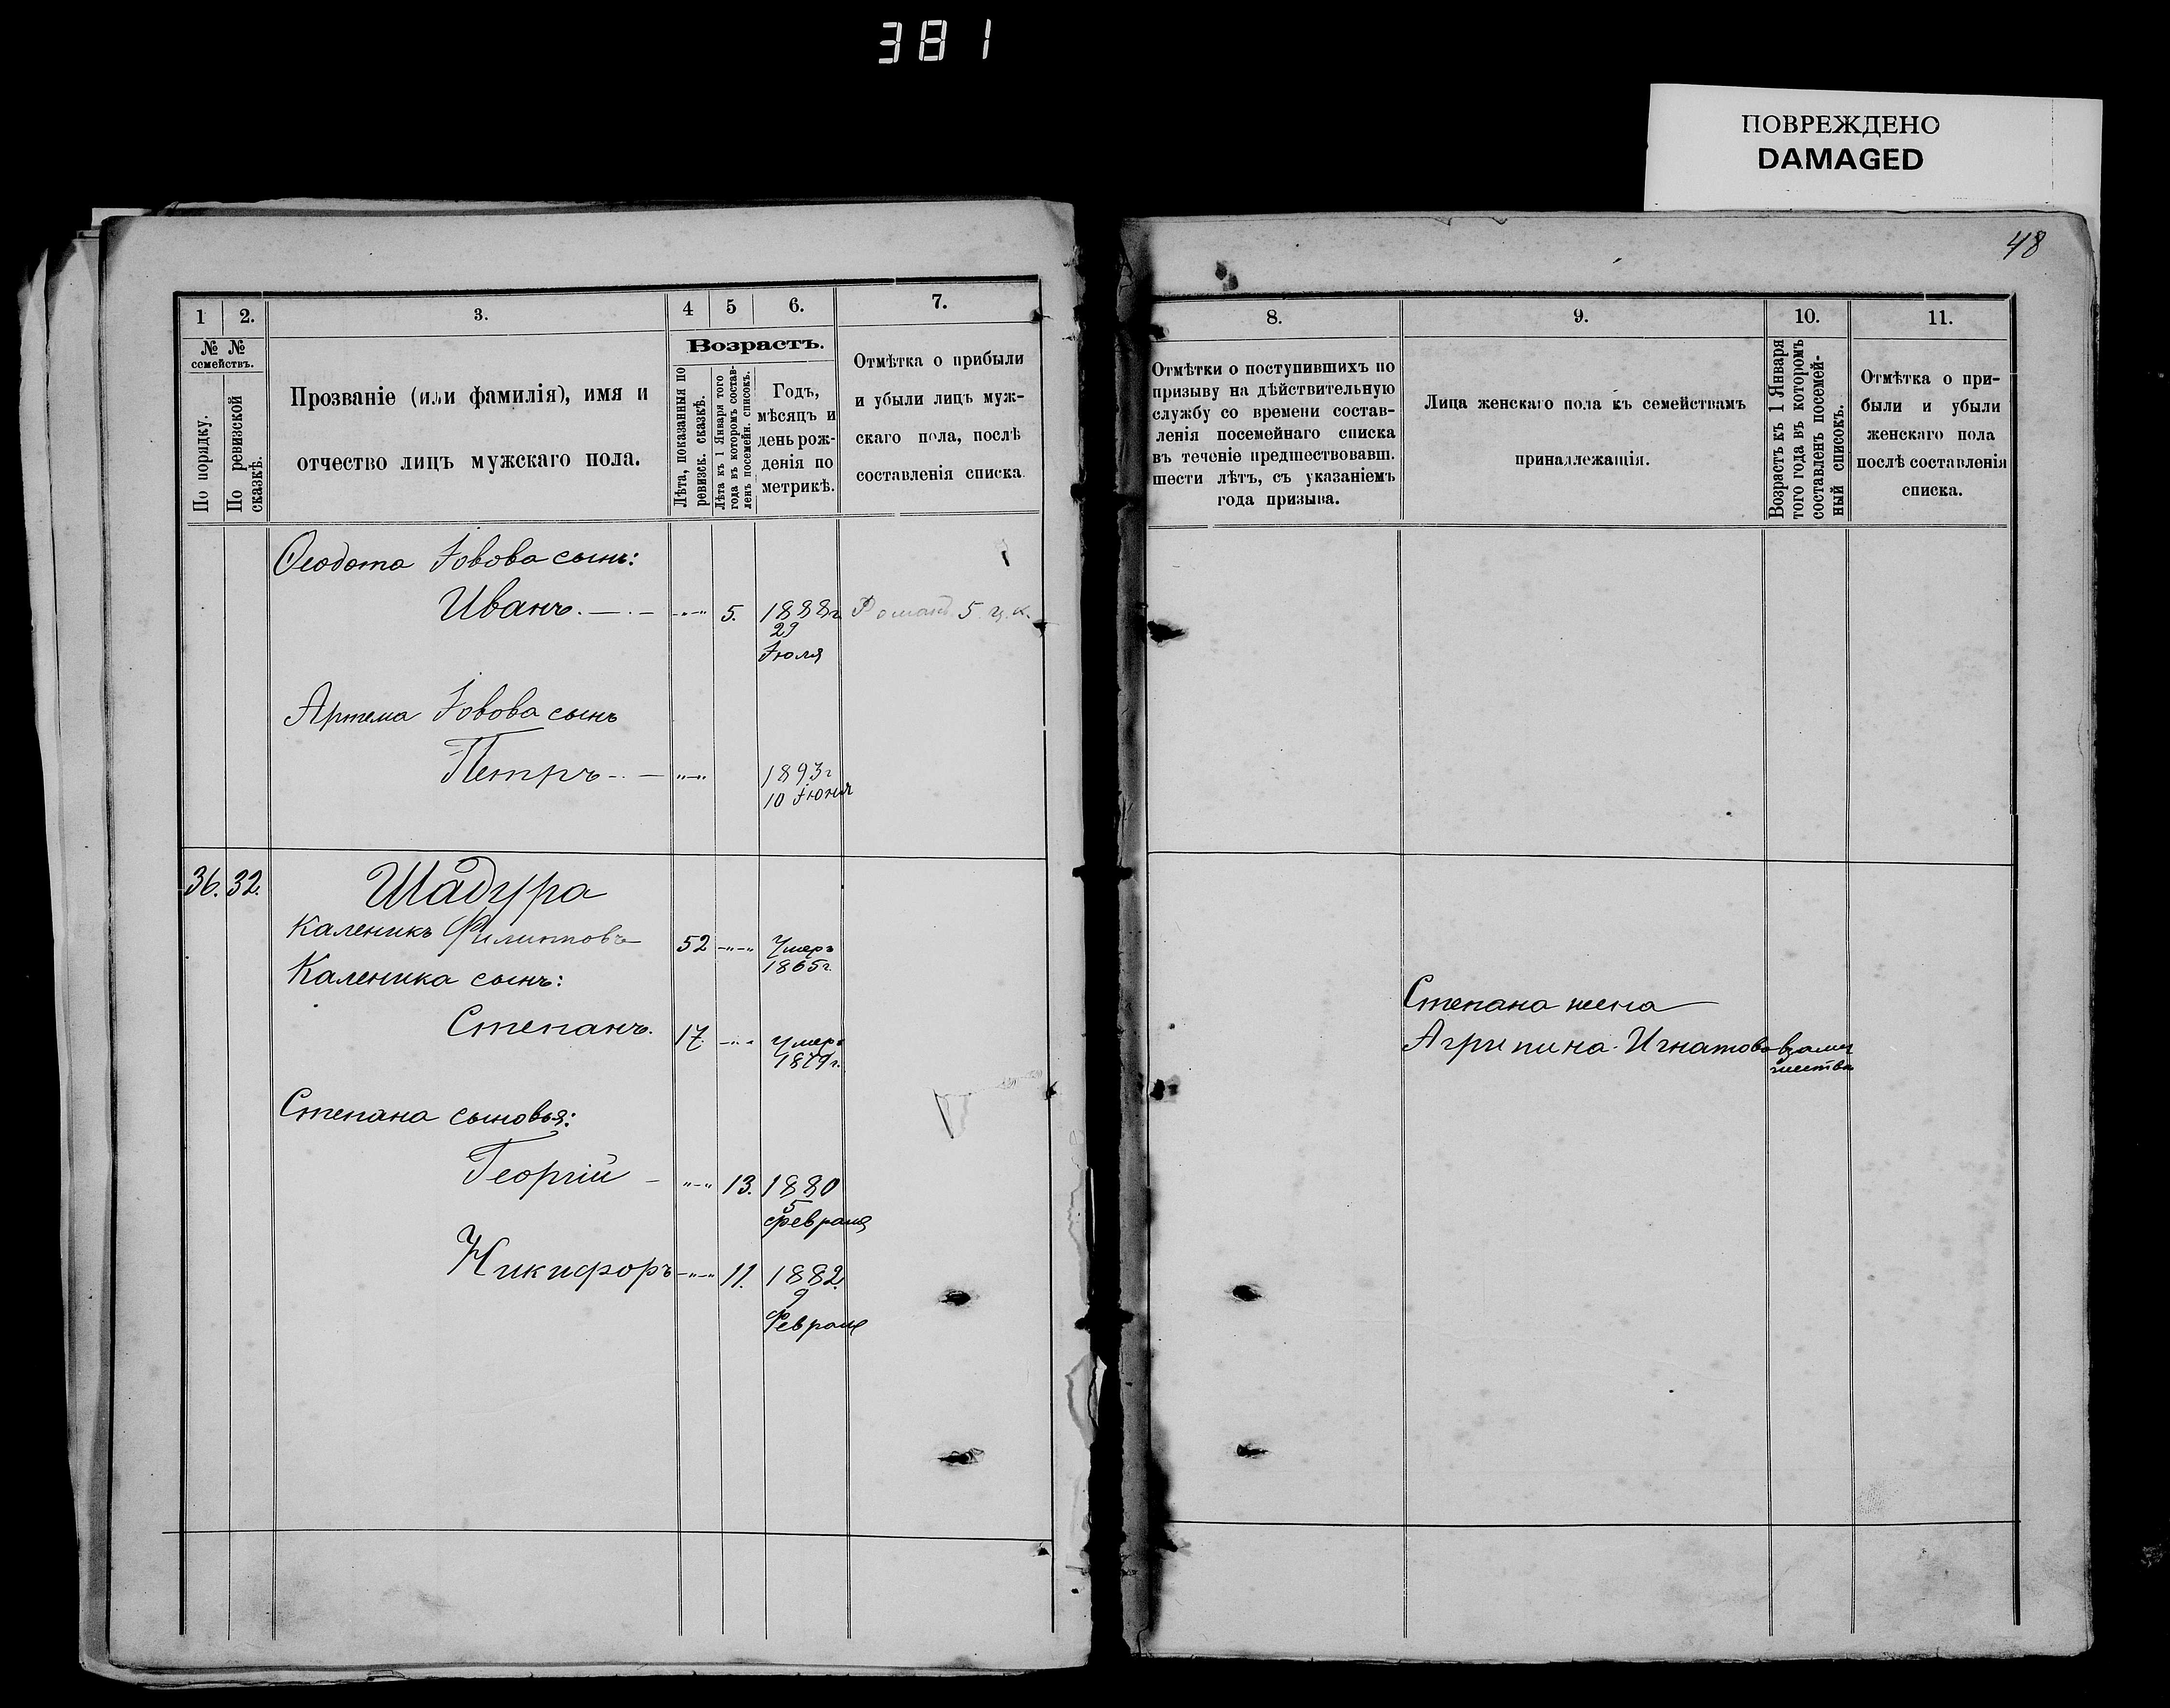 381
ПОВРЕЖДЕНО
DAMAGED
48
1
2.
3.
4
5
6.
7.
№ №
семействъ.
По порядку.
По ревизской
сказкѣ.
Прозваніе (или фамилія), имя и
отчество лицъ мужскаго пола.
Возрастъ.
Лѣта, показанныя по
ревизск. сказкѣ.
Лѣта къ 1 Января того
года въ которомъ состав-
ленъ посемейн. списокъ.
Годъ,
мѣсяцъ и
день рож-
денія по
метрикѣ.
Отмѣтка о прибыли
и убыли лицъ муж-
скаго пола, послѣ
составленія списка
Ѳеодота Іовова сынъ:
Иванъ. 5. 1888г.
29
Іюля
5
Артема Іовова сынъ
Петръ 1893г
10 Іюня
36. 32. Шадура
Каленикъ Филиповъ 52 Умеръ
1865г.
Каленика сынъ:
Степанъ. 17. Умеръ
Степана сыновья:
Георгій 13. 1880
5
февраля
Никифоръ 11. 1882.
9
Февраля
8.
9.
10.
11.
Отмѣтки о поступившихъ по
призыву на дѣйствительную
службу со времени состав-
ленія посемейнаго списка
въ теченіе предшествовавш.
шести лѣтъ, съ указаніемъ
года призыва.
Лица женскаго пола къ семействамъ
принадлежащія.
Возрастъ къ 1 Января
того года въ которомъ
составленъ посемей-
ный списокъ.
Отмѣтка о при-
были и убыли
женскаго пола
послѣ составленія
списка.
Степана жена
Агрипина Игнатова взаму
жествѣ